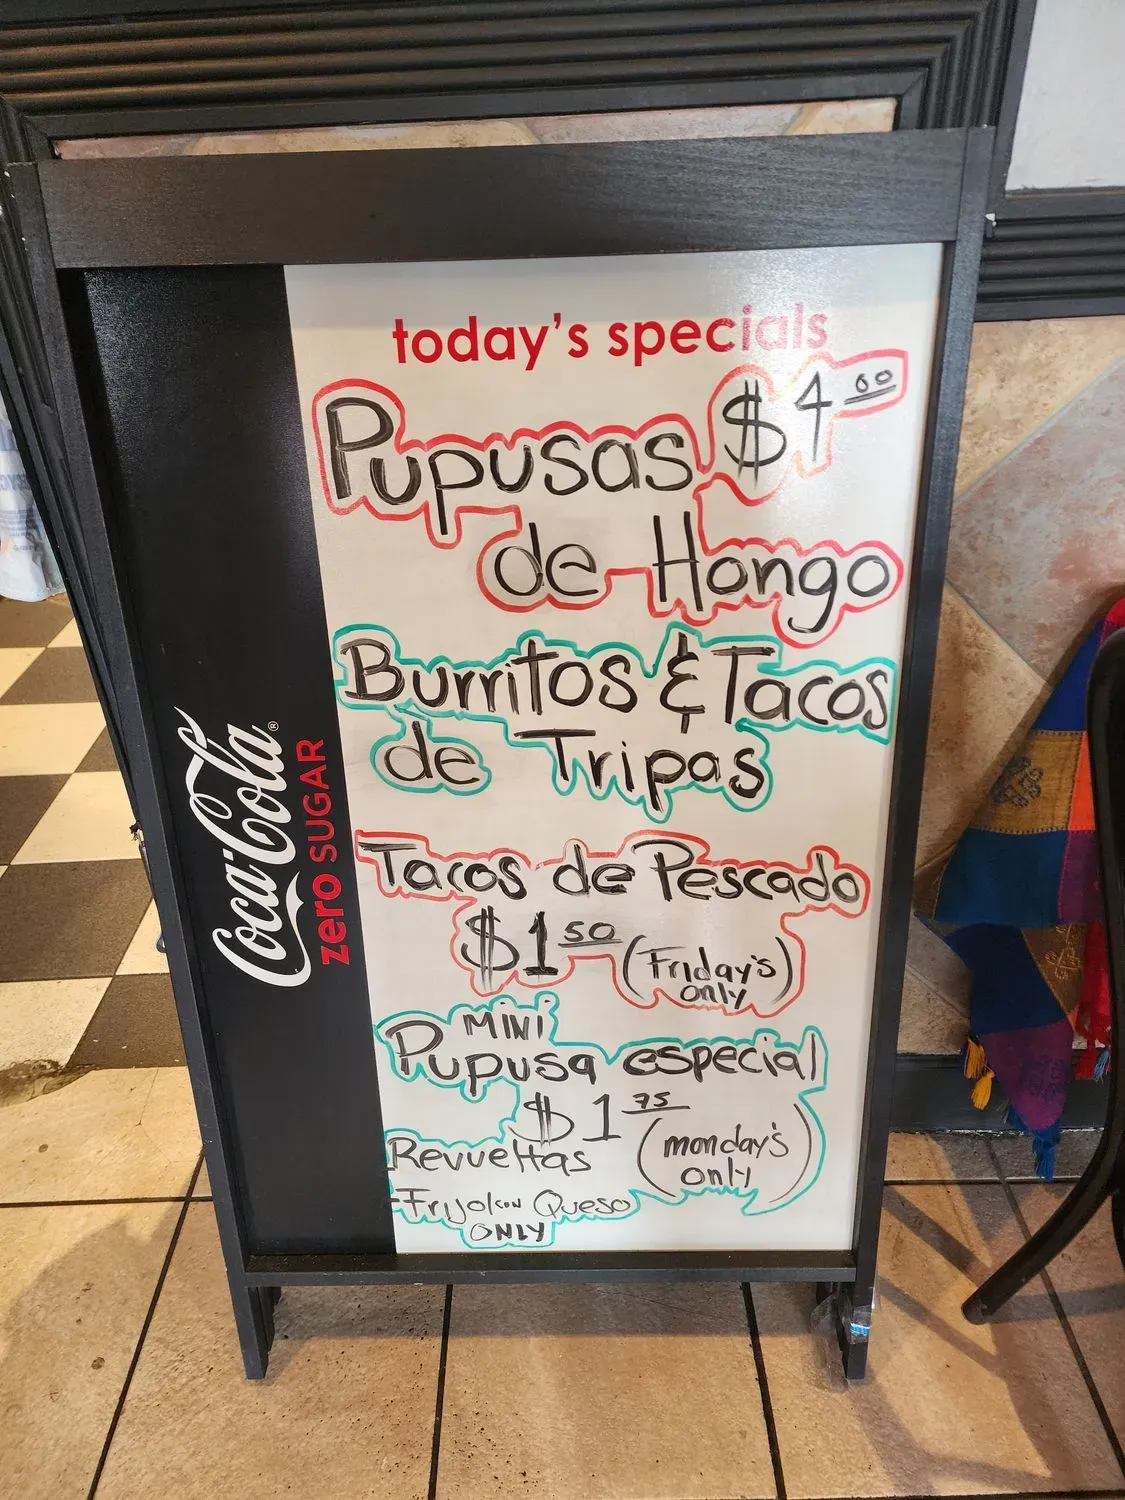 today's specials
Pupusas $4.00
de Hongo
Burritos & Tacos
de Tripas
Tacos de Pescado
$1.50 (Friday's
only)
MINI
Pupusa especial
$1.75
Revueltas (monday's
only)
-Frijol con Queso
ONLY
Coca-Cola®
zero SUGAR